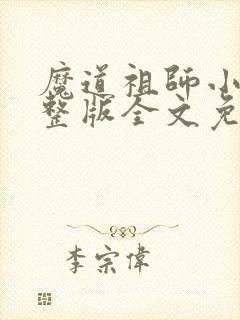 魔道祖師小
整版全文免
李宗偉